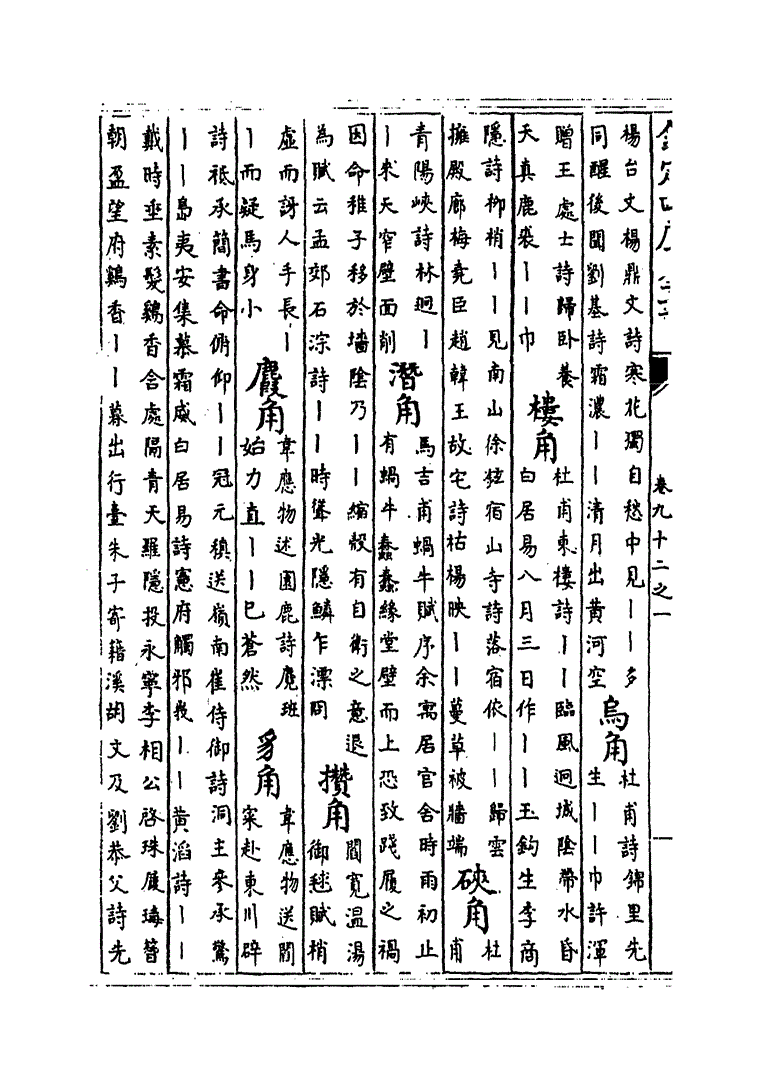 欽定四庫全書
卷九十二之一
楊台文楊鼎文詩寒花獨自愁中見丨丨多
同醒後聞劉基詩霜濃丨丨清月出黃河空
烏角
杜甫詩錦里先
生丨丨巾許渾
贈王處士詩歸卧養
天真鹿裘丨丨巾
樓角
杜甫東樓詩丨丨臨風迥城陰帶水昏
白居易八月三日作丨丨玉鈎生李商
隱詩柳梢丨丨見南山徐鉉宿山寺詩落宿依丨丨歸雲
擁殿廊梅堯臣趙韓王故宅詩枯楊映丨丨蔓草被牆端
硤角
杜
甫
青陽峽詩林迥丨
丨來天窄壁面削
潛角
馬吉甫蝸牛賦序余寓居官舍時雨初止
有蝸牛蠢蠢緣堂壁而上恐致踐履之禍
因命稚子移於墻陰乃丨丨縮殼有自衛之意退
為賦云孟郊石淙詩丨丨時聳光隱鱗乍漂問
攢角
閻寛溫湯
御毬賦稍
虛而訝人手長丨
丨而疑馬身小
麚角
韋應物述園鹿詩麑班
始力直丨丨已蒼然
豸角
韋應物送閻
寀赴東川辟
詩祇承簡書命俯仰丨丨冠元稹送嶺南崔侍御詩洞主參承驚
丨丨島夷安集慕霜威白居易詩憲府觸邪峩丨丨黃滔詩丨丨
戴時垂素髮鷄香含處隔青天羅隱投永寧李相公啓珠履瑇簪
朝盈望府鷄香丨丨暮出行臺朱子寄籍溪胡文及劉恭父詩先